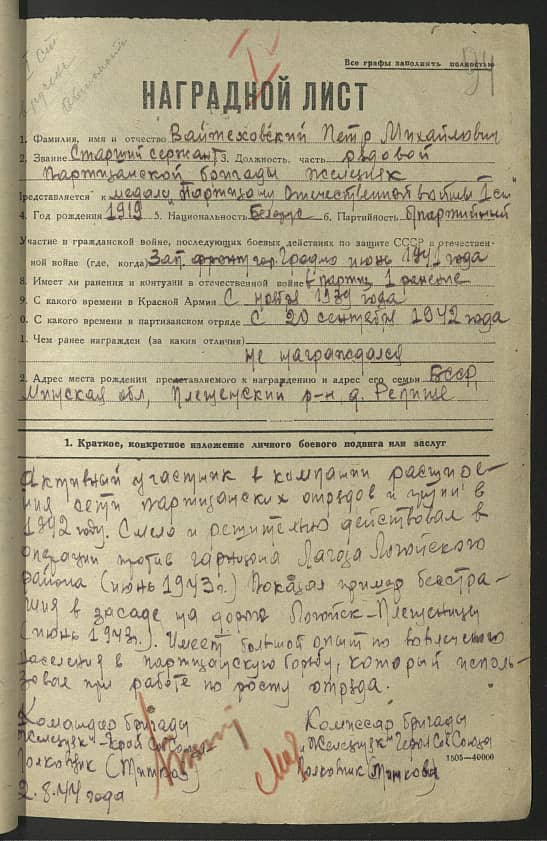 Все графы заполнить полностью
94
НАГРАДНОЙ ЛИСТ
1. Фамилия, имя и отчество Вайтеховский Петр Михайлович
2. Звание Старший сержант 3. Должность, часть рядовой
партизанской бригады Железняк
Представляется к медали "Партизану Отечественной войны I ст"
4. Год рождения 1919 5. Национальность Белорус 6. Партийность б/партийный
Участие в гражданской войне, последующих боевых действиях по защите СССР в отечествен-
ной войне (где, когда) Зап. фронт гор. Гродно июнь 1941 года
8. Имеет ли ранения и контузии в отечественной войне в партиз 1 ранение
9. С какого времени в Красной Армии С ноября 1939 года
0. С какого времени в партизанском отряде С 20 сентября 1942 года
1. Чем ранее награжден (за какия отличия)
не награждался
2. Адрес места рождения представляемого к награждению и адрес его семьи БССР,
Минская обл, Плещенский р-н д. Репище
1. Краткое, конкретное изложение личного боевого подвига или заслуг
Активный участник в компании расшире-
ния сети партизанских отрядов и групп в
1942 году. Смело и решительно действовал в
операции против гарнизона Логойского
района (июнь 1943 г.) Показал пример бесстра-
шия в засаде на дороге Логойск-Плещеницы
(июнь 1943 г.). Имеет большой опыт по вовлечению
населения в партизанскую борьбу, который исполь-
зовал при работе по росту отряда.
Командир бригады
"Железняк"-Герой Сов Союза
Полковник (Титков)
2.8.44 года
Комиссар бригады
"Железняк" Героя Сов Союза
Полковник
1505—40000